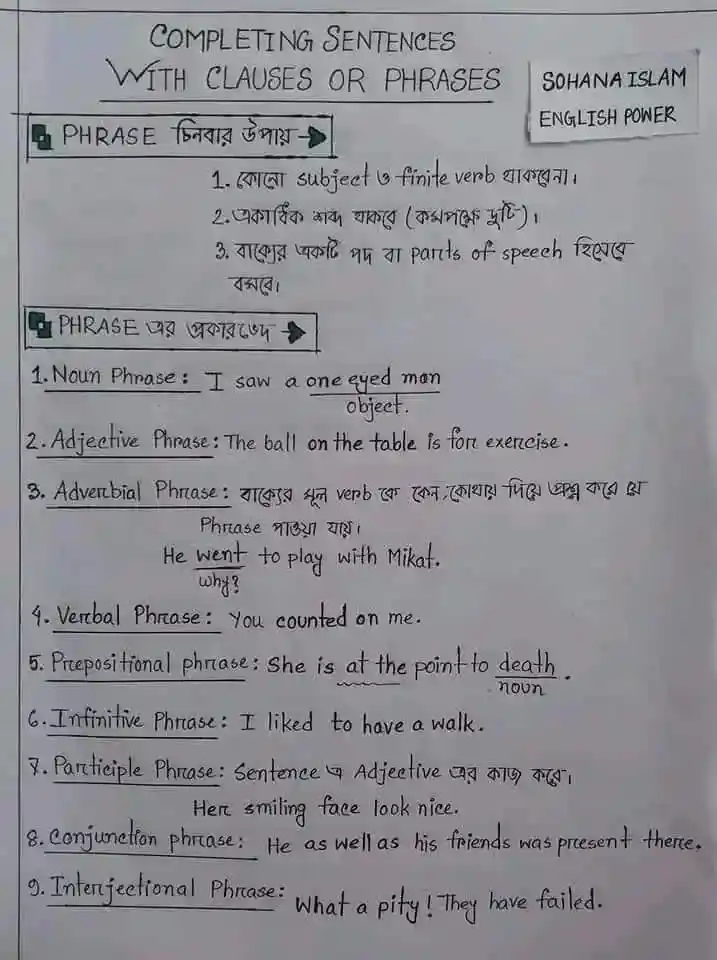 COMPLETING SENTENCES
WITH CLAUSES OR PHRASES
SOHANA ISLAM
ENGLISH POWER
PHRASE চিনবার উপায়
1. কোনো subject ও finite verb থাকবেনা।
2. একাধিক শব্দ থাকবে (কমপক্ষে দুটি)।
3. বাক্যের একটি পদ বা parts of speech হিসেবে
বসবে।
PHRASE এর প্রকারভেদ
1. Noun Phrase: I saw a one eyed man
object.
2. Adjective Phrase: The ball on the table is for exercise.
3. Adverbial Phrase: বাক্যের মূল verb কে কেন, কোথায় দিয়ে প্রশ্ন করে যে
Phrase পাওয়া যায়।
He went to play with Mikat.
why?
4. Verbal Phrase: You counted on me.
5. Prepositional phrase: She is at the point to death.
noun
6. Infinitive Phrase: I liked to have a walk.
7. Participle Phrase: Sentence এ Adjective এর কাজ করে।
Her smiling face look nice.
8. Conjunction phrase: He as well as his friends was present there.
9. Interjectional Phrase: What a pity! They have failed.